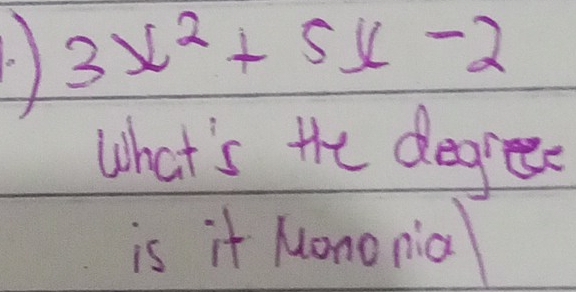 1.) 3x² + 5x - 2
What's the degree
is it Mononial